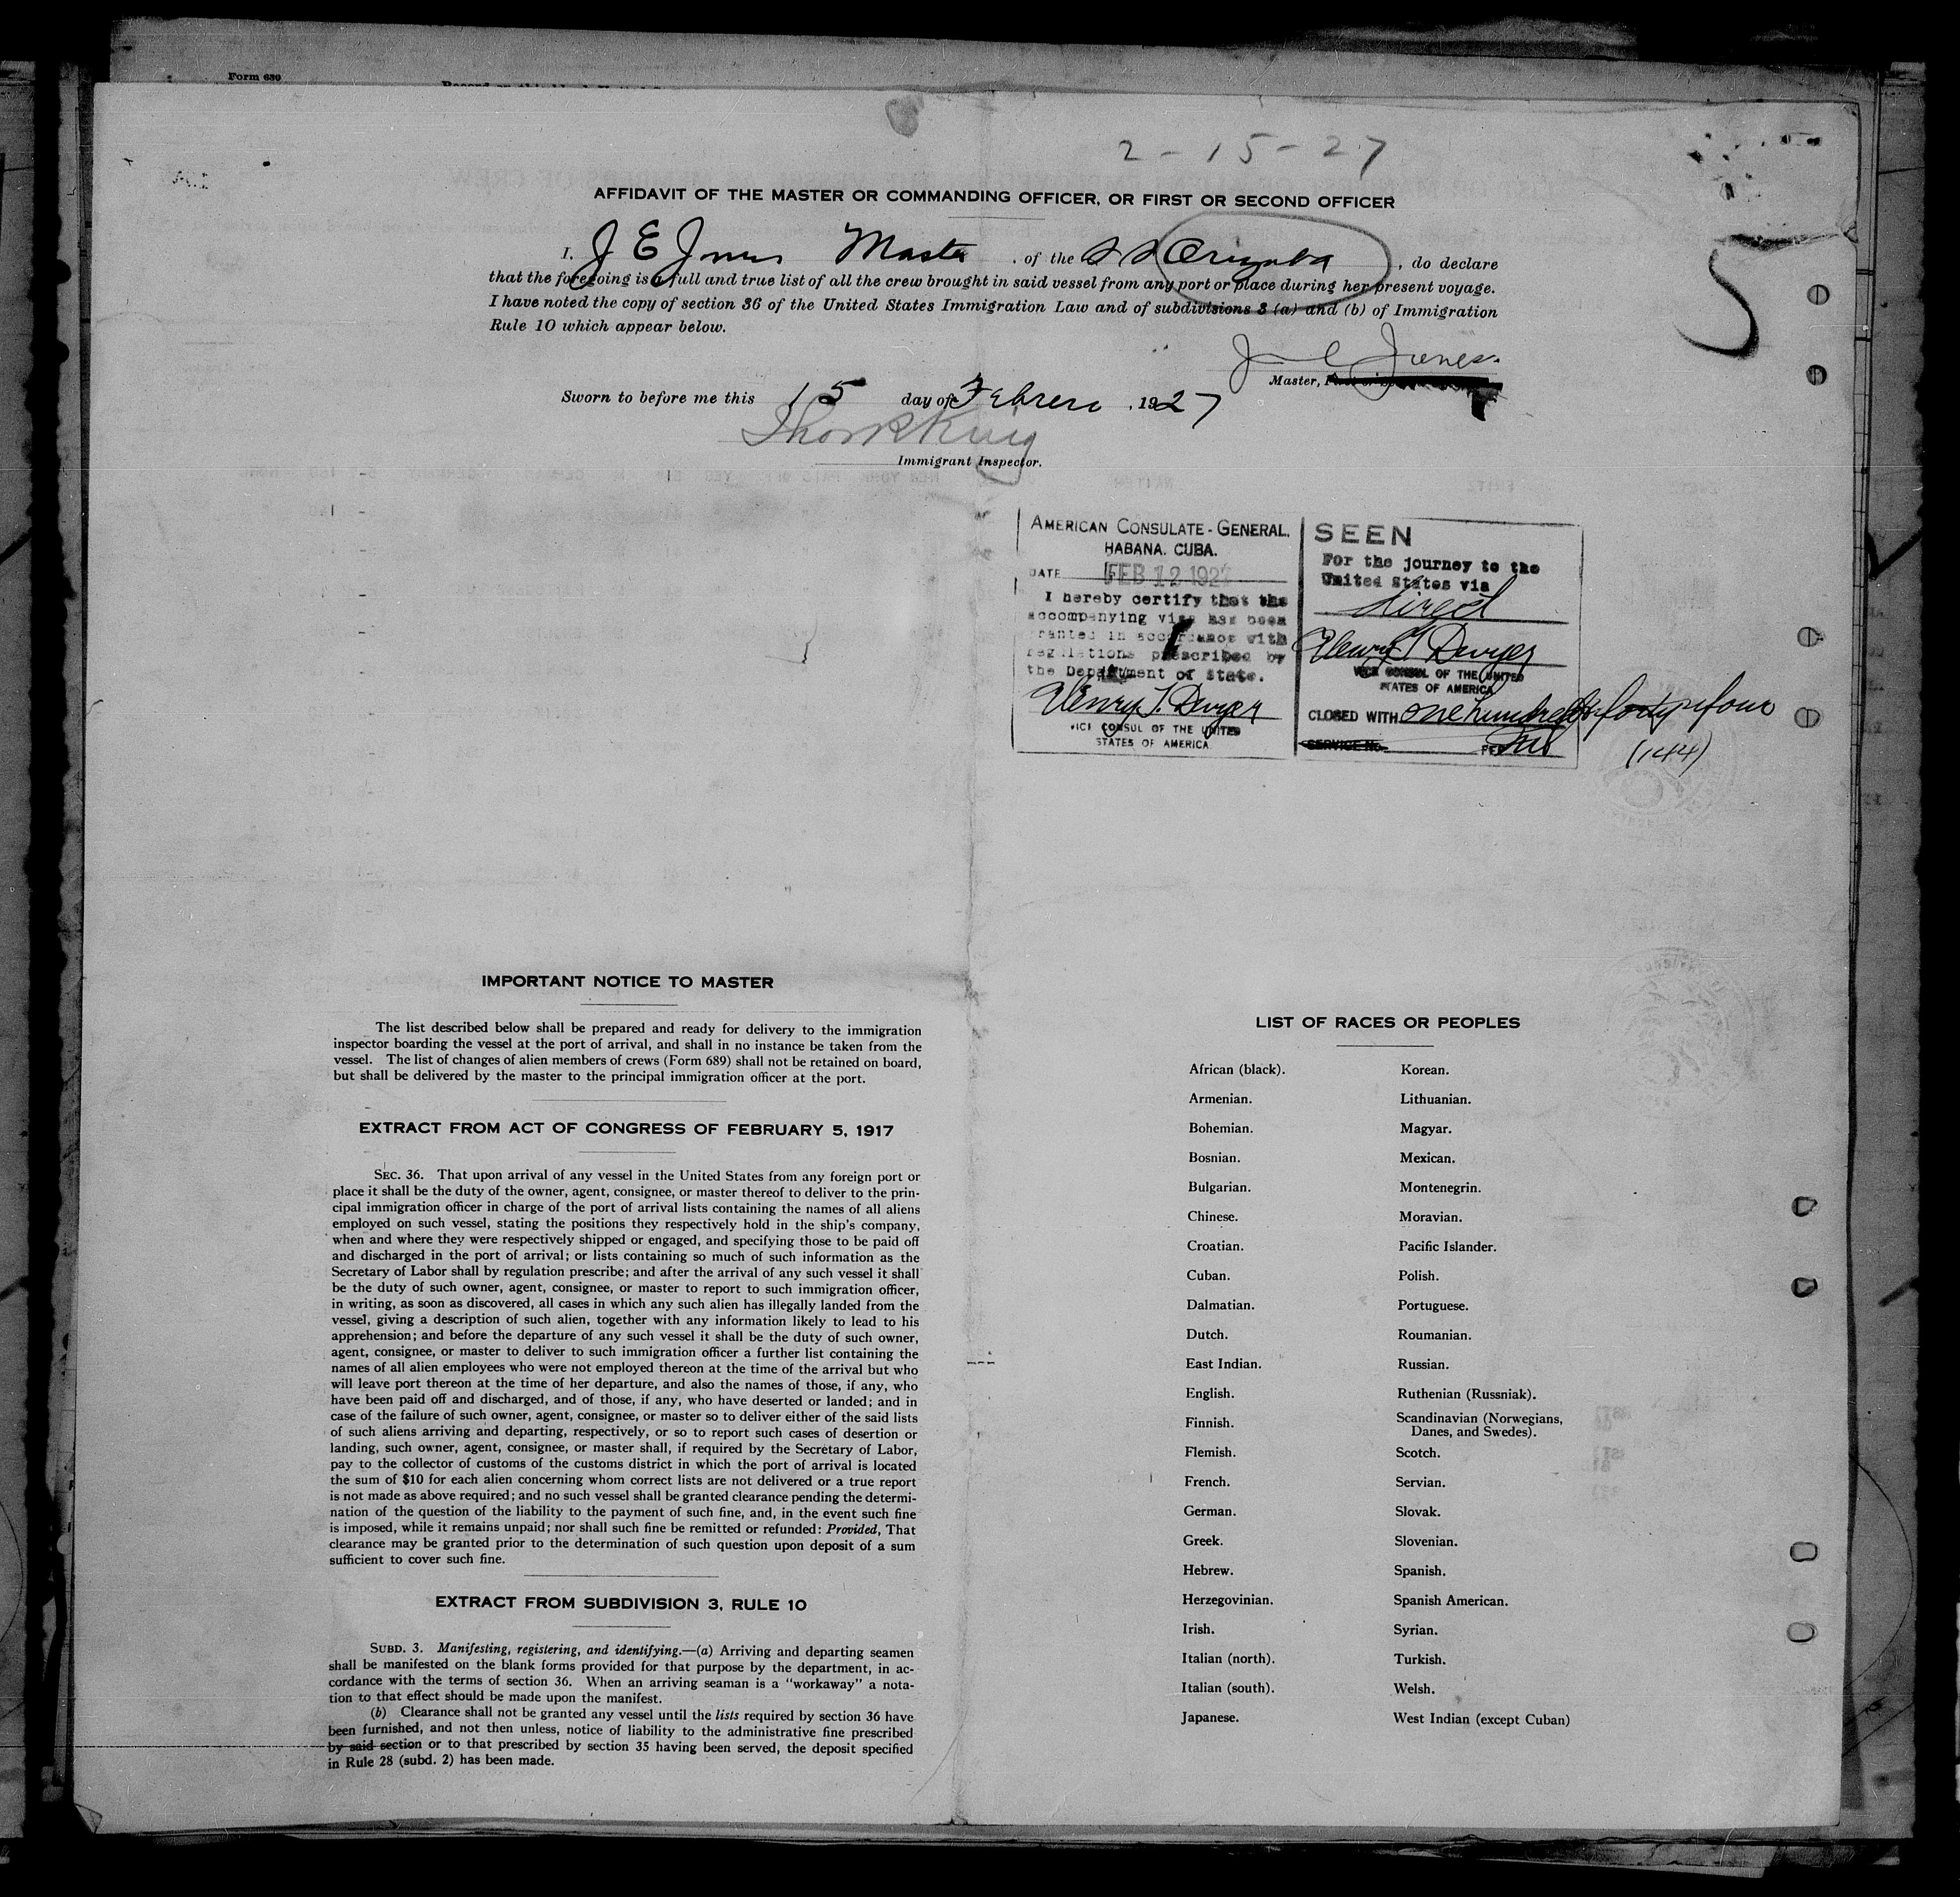 Form 689
2-15-27
AFFIDAVIT OF THE MASTER OR COMMANDING OFFICER, OR FIRST OR SECOND OFFICER
I, J E Jones Master, of the SS Orizaba, do declare
that the foregoing is a full and true list of all the crew brought in said vessel from any port or place during her present voyage.
I have noted the copy of section 36 of the United States Immigration Law and of subdivisions 3 (a) and (b) of Immigration
Rule 10 which appear below.
J E Jones.
Master,
Sworn to before me this 15 day of Febrero, 1927
Immigrant Inspector.
AMERICAN CONSULATE-GENERAL,
HABANA, CUBA.
DATE FEB 12 1927
I hereby certify that the
accompanying visa has been
granted in accordance with
regulations prescribed by
the Department of State.
Henry T. Dwyer
VICE CONSUL OF THE UNITED
STATES OF AMERICA
SEEN
For the journey to the
United States via
direct
Henry T Dwyer
VICE CONSUL OF THE UNITED
STATES OF AMERICA
CLOSED WITH one hundred forty four
SERVICE No. PER
(144)
IMPORTANT NOTICE TO MASTER
The list described below shall be prepared and ready for delivery to the immigration
inspector boarding the vessel at the port of arrival, and shall in no instance be taken from the
vessel. The list of changes of alien members of crews (Form 689) shall not be retained on board,
but shall be delivered by the master to the principal immigration officer at the port.
EXTRACT FROM ACT OF CONGRESS OF FEBRUARY 5, 1917
SEC. 36. That upon arrival of any vessel in the United States from any foreign port or
place it shall be the duty of the owner, agent, consignee, or master thereof to deliver to the prin-
cipal immigration officer in charge of the port of arrival lists containing the names of all aliens
employed on such vessel, stating the positions they respectively hold in the ship's company,
when and where they were respectively shipped or engaged, and specifying those to be paid off
and discharged in the port of arrival; or lists containing so much of such information as the
Secretary of Labor shall by regulation prescribe; and after the arrival of any such vessel it shall
be the duty of such owner, agent, consignee, or master to report to such immigration officer,
in writing, as soon as discovered, all cases in which any such alien has illegally landed from the
vessel, giving a description of such alien, together with any information likely to lead to his
apprehension; and before the departure of any such vessel it shall be the duty of such owner,
agent, consignee, or master to deliver to such immigration officer a further list containing the
names of all alien employees who were not employed thereon at the time of the arrival but who
will leave port thereon at the time of her departure, and also the names of those, if any, who
have been paid off and discharged, and of those, if any, who have deserted or landed; and in
case of the failure of such owner, agent, consignee, or master so to deliver either of the said lists
of such aliens arriving and departing, respectively, or so to report such cases of desertion or
landing, such owner, agent, consignee, or master shall, if required by the Secretary of Labor,
pay to the collector of customs of the customs district in which the port of arrival is located
the sum of $10 for each alien concerning whom correct lists are not delivered or a true report
is not made as above required; and no such vessel shall be granted clearance pending the determi-
nation of the question of the liability to the payment of such fine, and, in the event such fine
is imposed, while it remains unpaid; nor shall such fine be remitted or refunded: Provided, That
clearance may be granted prior to the determination of such question upon deposit of a sum
sufficient to cover such fine.
EXTRACT FROM SUBDIVISION 3, RULE 10
SUBD. 3. Manifesting, registering, and identifying.—(a) Arriving and departing seamen
shall be manifested on the blank forms provided for that purpose by the department, in ac-
cordance with the terms of section 36. When an arriving seaman is a "workaway" a nota-
tion to that effect should be made upon the manifest.
(b) Clearance shall not be granted any vessel until the lists required by section 36 have
been furnished, and not then unless, notice of liability to the administrative fine prescribed
by said section or to that prescribed by section 35 having been served, the deposit specified
in Rule 28 (subd. 2) has been made.
LIST OF RACES OR PEOPLES
African (black).
Armenian.
Bohemian.
Bosnian.
Bulgarian.
Chinese.
Croatian.
Cuban.
Dalmatian.
Dutch.
East Indian.
English.
Finnish.
Flemish.
French.
German.
Greek.
Hebrew.
Herzegovinian.
Irish.
Italian (north).
Italian (south).
Japanese.
Korean.
Lithuanian.
Magyar.
Mexican.
Montenegrin.
Moravian.
Pacific Islander.
Polish.
Portuguese.
Roumanian.
Russian.
Ruthenian (Russniak).
Scandinavian (Norwegians,
Danes, and Swedes).
Scotch.
Servian.
Slovak.
Slovenian.
Spanish.
Spanish American.
Syrian.
Turkish.
Welsh.
West Indian (except Cuban)